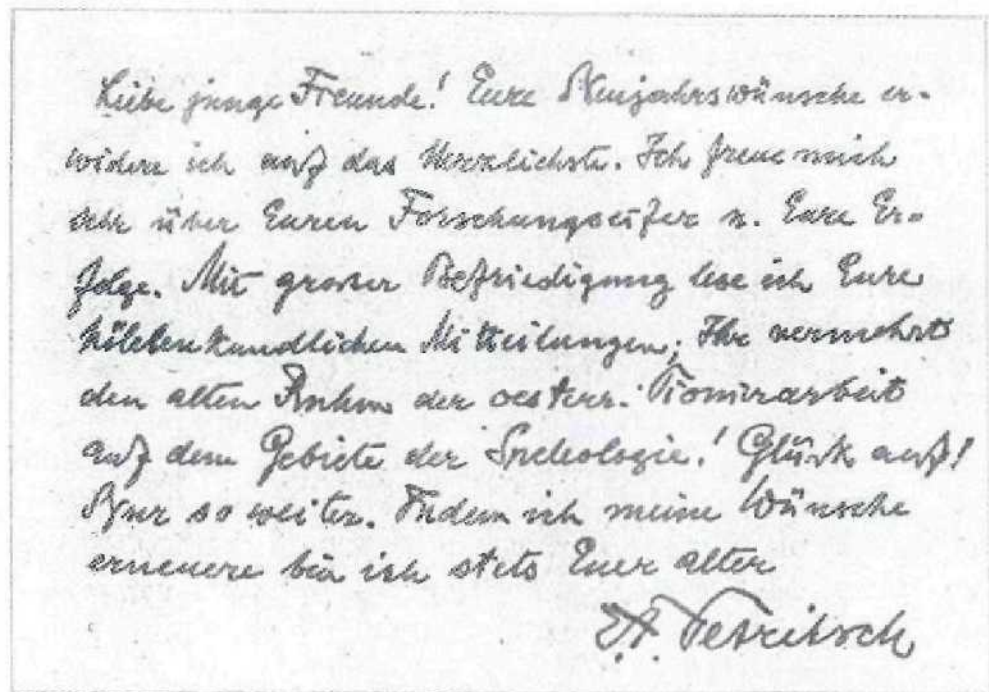 Liebe junge Freunde! Eure Neujahrswünsche er-
widere ich auf das Herzlichste. Ich freue mich
sehr über Euren Forschungseifer u. Eure Er-
folge. Mit grosser Befriedigung lese ich Eure
höhlenkundlichen Mitteilungen; Ihr vermehrt
den alten Ruhm der oesterr. Pionierarbeit
auf dem Gebiete der Speleologie! Glück auf!
Nur so weiter. Indem ich meine Wünsche
erneuere bin ich stets Euer alter